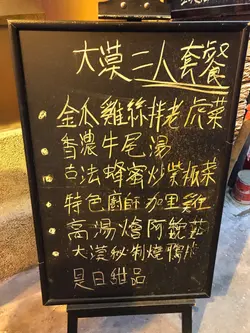 大漠二人套餐
金瓜雞絲拌老虎菜
香濃牛尾湯
古法蜂蜜炒紫椒菜
特色廚師加里雞
高湯燴阿菀茄
大漠秘制燒鴨片
是日甜品